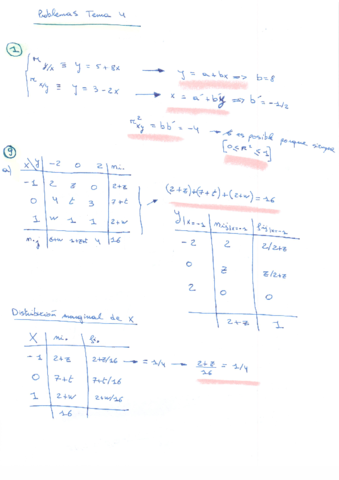 Problemas Tema 4
1
r y/x ≡ y = 5 + 8x → y = a + bx ⇒ b = 8
r x/y ≡ y = 3 - 2x → x = a' + b'y ⇒ b' = -1/2
r²xy = bb' = -4 → es posible porque siempre
[0 ≤ r² ≤ 1]
9
a) X\Y -2 0 2 ni.
-1 2 z 0 2+z
0 4 t 3 7+t
1 w 1 1 2+w
n.j 4 16
(2+z)+(7+t)+(2+w) = 16
Y|x=-1
-2 2 2/2+z
0 z z/2+z
2 0 0
2+z 1
Distribución marginal de X
X ni. fi.
-1 2+z 2+z/16 → = 1/4 → 2+z/16 = 1/4
0 7+t 7+t/16
1 2+w 2+w/16
16